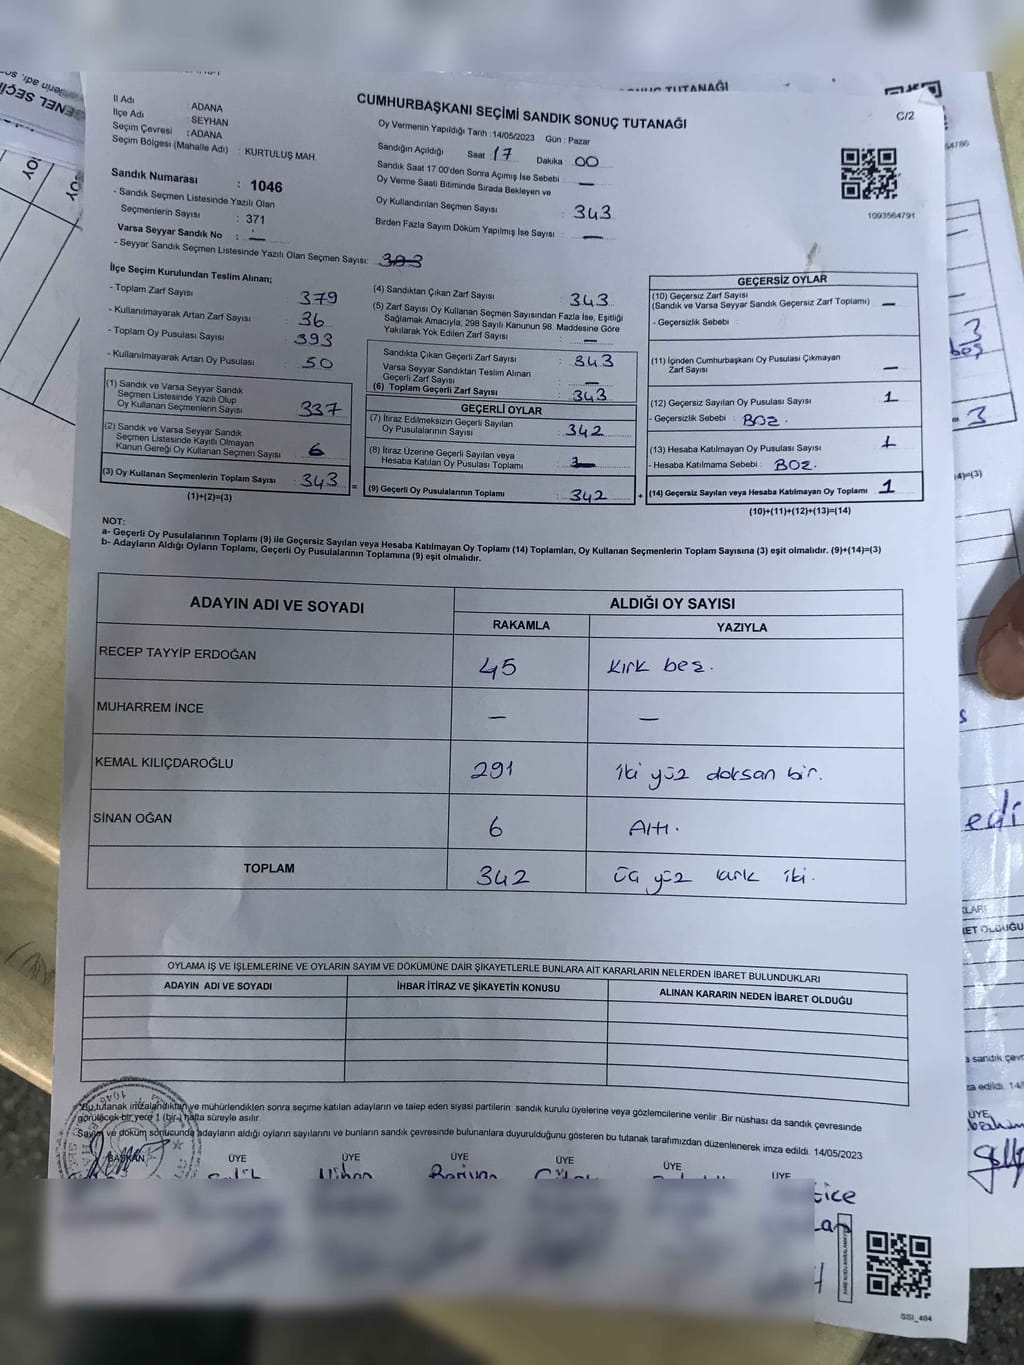 CUMHURBAŞKANI SEÇİMİ SANDIK SONUÇ TUTANAĞI
C/2
İl Adı : ADANA
İlçe Adı : SEYHAN
Seçim Çevresi : ADANA
Seçim Bölgesi (Mahalle Adı) : KURTULUŞ MAH.
Sandık Numarası : 1046
- Sandık Seçmen Listesinde Yazılı Olan
Seçmenlerin Sayısı : 371
Varsa Seyyar Sandık No : —
- Seyyar Sandık Seçmen Listesinde Yazılı Olan Seçmen Sayısı:
Oy Vermenin Yapıldığı Tarih :14/05/2023 Gün : Pazar
Sandığın Açıldığı Saat 17 Dakika 00
Sandık Saat 17.00'den Sonra Açımış İse Sebebi : —
Oy Verme Saati Bitiminde Sırada Bekleyen ve
Oy Kullandırılan Seçmen Sayısı : 343
Birden Fazla Sayım Döküm Yapılmış İse Sayısı : —
1093564791
İlçe Seçim Kurulundan Teslim Alınan;
- Toplam Zarf Sayısı : 379
- Kullanılmayarak Artan Zarf Sayısı : 36
- Toplam Oy Pusulası Sayısı : 393
- Kullanılmayarak Artan Oy Pusulası : 50
(1) Sandık ve Varsa Seyyar Sandık
Seçmen Listesinde Yazılı Olup
Oy Kullanan Seçmenlerin Sayısı : 337
(2) Sandık ve Varsa Seyyar Sandık
Seçmen Listesinde Kayıtlı Olmayan
Kanun Gereği Oy Kullanan Seçmen Sayısı : 6
(3) Oy Kullanan Seçmenlerin Toplam Sayısı : 343
(1)+(2)=(3)
(4) Sandıktan Çıkan Zarf Sayısı : 343
(5) Zarf Sayısı Oy Kullanan Seçmen Sayısından Fazla İse, Eşitliği
Sağlamak Amacıyla; 298 Sayılı Kanunun 98. Maddesine Göre
Yakılarak Yok Edilen Zarf Sayısı : —
Sandıkta Çıkan Geçerli Zarf Sayısı : 343
Varsa Seyyar Sandıktan Teslim Alınan
Geçerli Zarf Sayısı : —
(6) Toplam Geçerli Zarf Sayısı : 343
GEÇERLİ OYLAR
(7) İtiraz Edilmeksizin Geçerli Sayılan
Oy Pusulalarının Sayısı : 342
(8) İtiraz Üzerine Geçerli Sayılan veya
Hesaba Katılan Oy Pusulası Toplamı :
= (9) Geçerli Oy Pusulalarının Toplamı : 342 +
GEÇERSİZ OYLAR
(10) Geçersiz Zarf Sayısı
(Sandık ve Varsa Seyyar Sandık Geçersiz Zarf Toplamı) —
- Geçersizlik Sebebi :
(11) İçinden Cumhurbaşkanı Oy Pusulası Çıkmayan
Zarf Sayısı —
(12) Geçersiz Sayılan Oy Pusulası Sayısı 1
- Geçersizlik Sebebi : BOZ.
(13) Hesaba Katılmayan Oy Pusulası Sayısı 1
- Hesaba Katılmama Sebebi : BOZ.
(14) Geçersiz Sayılan veya Hesaba Katılmayan Oy Toplamı 1
(10)+(11)+(12)+(13)=(14)
NOT:
a- Geçerli Oy Pusulalarının Toplamı (9) ile Geçersiz Sayılan veya Hesaba Katılmayan Oy Toplamı (14) Toplamları, Oy Kullanan Seçmenlerin Toplam Sayısına (3) eşit olmalıdır. (9)+(14)=(3)
b- Adayların Aldığı Oyların Toplamı, Geçerli Oy Pusulalarının Toplamına (9) eşit olmalıdır.
ADAYIN ADI VE SOYADI
ALDIĞI OY SAYISI
RAKAMLA YAZIYLA
RECEP TAYYİP ERDOĞAN 45 kırk beş.
MUHARREM İNCE — —
KEMAL KILIÇDAROĞLU 291 iki yüz doksan bir.
SİNAN OĞAN 6 Altı.
TOPLAM 342 üç yüz kırk iki.
OYLAMA İŞ VE İŞLEMLERİNE VE OYLARIN SAYIM VE DÖKÜMÜNE DAİR ŞİKAYETLERLE BUNLARA AİT KARARLARIN NELERDEN İBARET BULUNDUKLARI
ADAYIN ADI VE SOYADI İHBAR İTİRAZ VE ŞİKAYETİN KONUSU ALINAN KARARIN NEDEN İBARET OLDUĞU
*Bu tutanak imzalandıktan ve mühürlendikten sonra seçime katılan adayların ve talep eden siyasi partilerin sandık kurulu üyelerine veya gözlemcilerine verilir .Bir nüshası da sandık çevresinde
görülecek bir yere 1 (bir) hafta süreyle asılır.
Sayım ve döküm sonucunda adayların aldığı oyların sayılarını ve bunların sandık çevresinde bulunanlara duyurulduğunu gösteren bu tutanak tarafımızdan düzenlenerek imza edildi. 14/05/2023
BAŞKAN ÜYE ÜYE ÜYE ÜYE ÜYE ÜYE
GSI_404